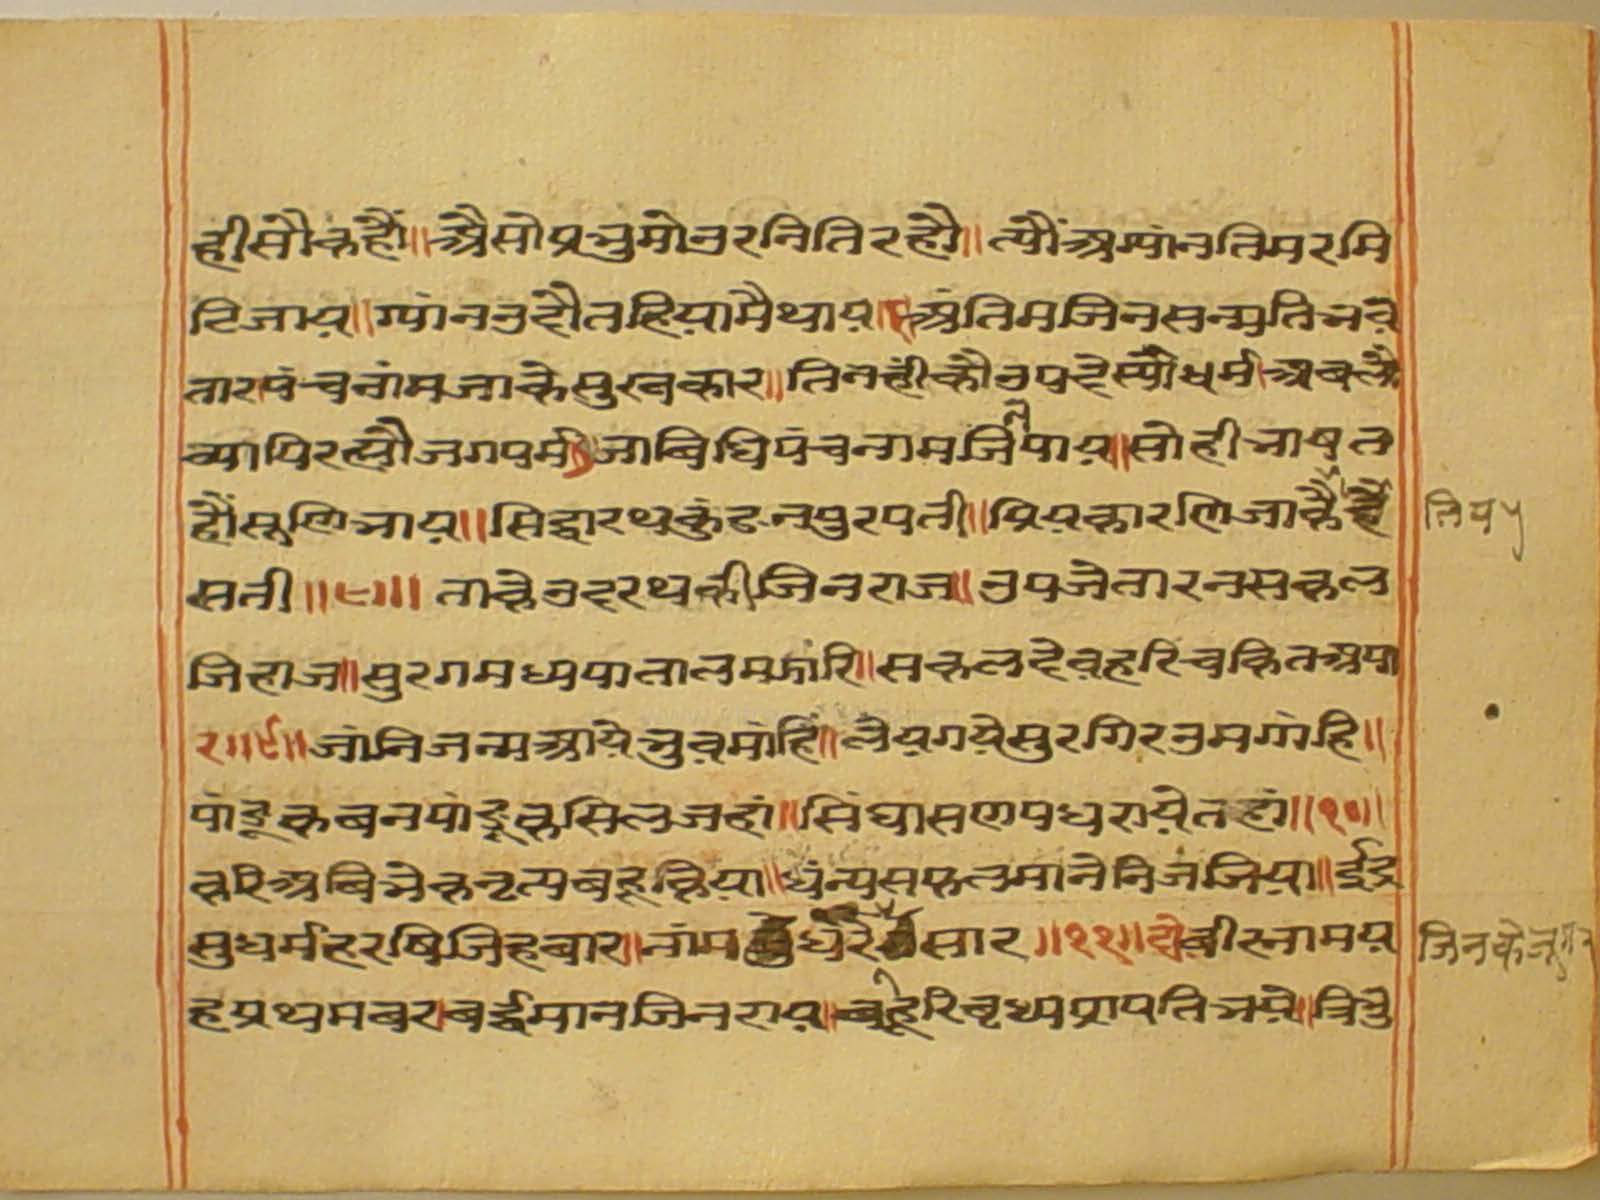 हीसौकहौं॥ अैसोप्रभुमोउरनितिरहौ॥ त्यौंअग्यांनतिमरमि
टिजाय॥ ग्यांनउदौतहियामैथाय॥ अंतिमजिनसन्मतिअव
तार।पंचनांमजाकेसुखकार॥ तिनहींकौउपदेस्यौधर्म।अबलौं
व्यापिरत्यौजगपर्म जाबिधिपंचनामजिनपाय॥ सोहीभाषत
हौंसुणिभाय॥ सिद्धारथकुंडनपुरपती॥ प्रियकारणिजाकै
सती॥८॥ ताकेउदरथकीजिनराज॥ उपजेतारनसकल
जिहाज॥ सुरगमध्यपातालमझारि॥ सकलदेवहरिचकितअपा
र॥९॥ जांनिजन्मआयेभुवमांहिं॥ लेयगयेसुरगिरउमगांहि॥
पांडूकबनपांडूकसिलजहां॥ सिंघासणपधरायेतहां॥१०॥
करिअबिभेकनृत्यबहूकिया॥ धंन्यसफलमानेनिजजिया॥ ईद्र
सुधर्महरषिजिहबार॥ नांम धरै सार॥११॥ बीरनामय
हप्रथमबर।बर्द्धमानजिनराय॥ बहूरिबृध्यप्रापतिभये॥ त्रिभु